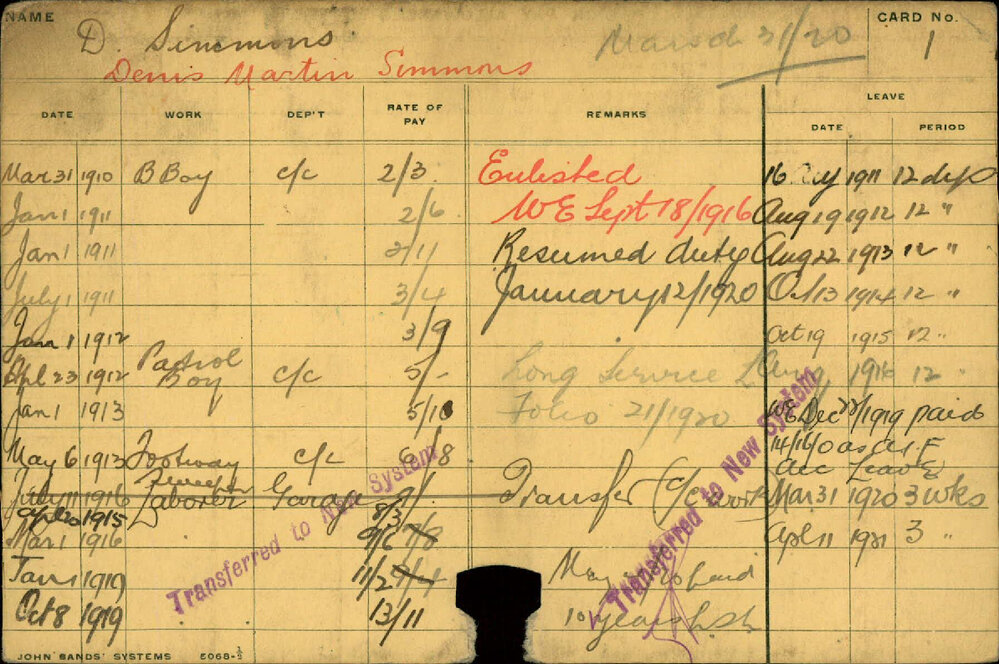 NAME
CARD No.
D. Simmons
March 31/20
1
Denis Martin Simmons
DATE WORK DEP'T RATE OF PAY REMARKS LEAVE
DATE PERIOD
Mar 31 1910 B Boy c/c 2/3 Enlisted 16 1911 12 dys
Jan 1 1911 2/6 WE Sept 18/1916 Aug 19 1912 12 "
Jan 1 1911 2/11 Resumed duty Aug 22 1913 12 "
July 1 1911 3/4 January 12/1920 Oct 13 1914 12 "
Jan 1 1912 3/9 Oct 19 1915 12 "
Apl 23 1912 Patrol Boy c/c 5/- Long Service L Aug 1916 12 "
Jan 1 1913 5/10 Folio 21/1920 WE Dec 1919 paid
May 6 1913 Footway sweeper c/c 6/8 14/16/0 as
Acc Leave
July 11 1916 Laborer Garage 9/. Transfer c/c Mar 31 1920 3 wks
Apl 20 1915 8/3
Mar 1 1916 9/6 Apl 11 1921 3 "
Jan 1 1919 11/2 9/4 paid
Oct 8 1919 13/11 10 years
Transferred to New System
Transferred to New System
JOHN SANDS' SYSTEMS 5068-½